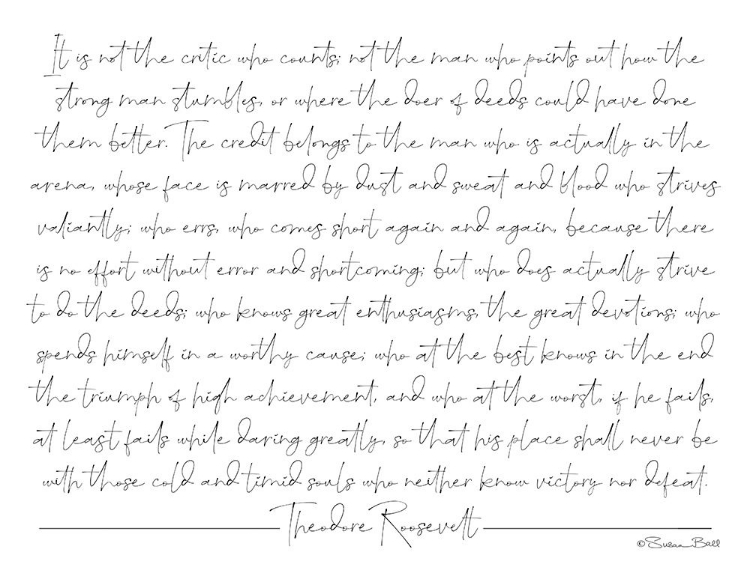 It is not the critic who counts; not the man who points out how the
strong man stumbles, or where the doer of deeds could have done
them better. The credit belongs to the man who is actually in the
arena, whose face is marred by dust and sweat and blood who strives
valiantly; who errs, who comes short again and again, because there
is no effort without error and shortcoming; but who does actually strive
to do the deeds; who knows great enthusiasms, the great devotions; who
spends himself in a worthy cause; who at the best knows in the end
the triumph of high achievement, and who at the worst, if he fails,
at least fails while daring greatly, so that his place shall never be
with those cold and timid souls who neither know victory nor defeat.
Theodore Roosevelt
©Susan Ball